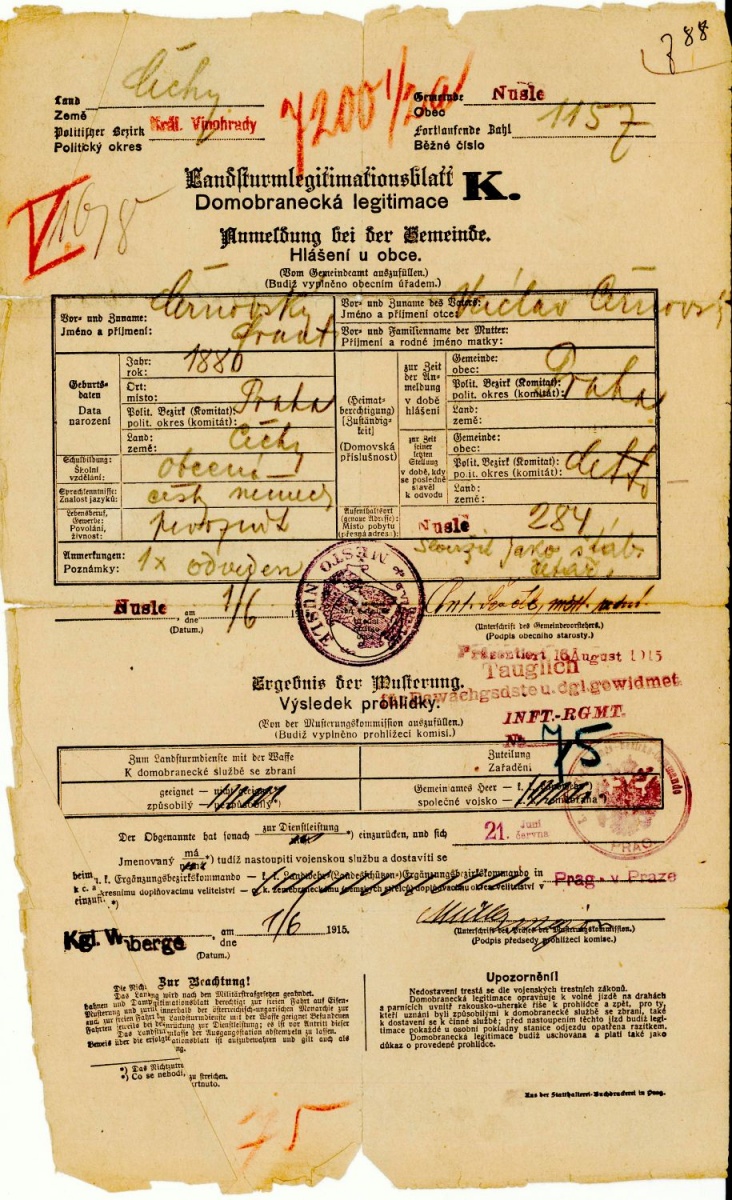 788
Čechy
7200 1/2a
Land
Země
Politischer Bezirk
Politický okres
Král. Vinohrady
Gemeinde
Obec
Nusle
Fortlaufende Zahl
Běžné číslo
1157
V
1678
Landsturmlegitimationsblatt K.
Domobranecká legitimace
Anmeldung bei der Gemeinde.
Hlášení u obce.
(Vom Gemeindeamt auszufüllen.)
(Budiž vyplněno obecním úřadem.)
Vor- und Zuname:
Jméno a příjmení:
Černovský
Frant
Vor- und Zuname des Vaters:
Jméno a příjmení otce:
Václav Černovský
Vor- und Familienname der Mutter:
Příjmení a rodné jméno matky:
Geburts-
daten
Data
narození
Jahr:
rok:
1880
Ort:
místo:
Praha
Polit. Bezirk (Komitat):
polit. okres (komitát):
Land:
země:
Čechy
(Heimat-
berechtigung)
[Zuständig-
keit]
(Domovská
příslušnost)
zur Zeit
der An-
meldung
v době
hlášení
Gemeinde:
obec:
Praha
Polit. Bezirk (Komitat):
polit. okres (komitát):
Land:
země:
zur Zeit
seiner
letzten
Stellung
v době, kdy
se posledně
stavěl
k odvodu
Gemeinde:
obec:
Polit. Bezirk (Komitat):
polit. okres (komitát):
detto
Land:
země:
Schulbildung:
Školní
vzdělání:
obecná
Sprachkenntnisse:
Znalost jazyků:
česky německ
Lebensberuf,
Gewerbe:
Povolání,
živnost:
Aufenthaltsort
(genaue Adresse):
Místo pobytu
(přesná adresa):
Nusle 284
Anmerkungen:
Poznámky:
1x odveden
Sloužil jako štáb.
MĚSTO NUSLE
Nusle
am
dne
1/6
(Datum.)
(Unterschrift des Gemeindevorstehers.)
(Podpis obecního starosty.)
Präsentiert 16 August 1915
Tauglich
zu Bewachgsdste u. dgl. gewidmet.
INFT.-RGMT.
No. 75
Ergebnis der Musterung.
Výsledek prohlídky.
(Von der Musterungskommission auszufüllen.)
(Budiž vyplněno prohlížecí komisí.)
Zum Landsturmdienste mit der Waffe
K domobranecké službě se zbraní
Zuteilung
Zařadění
geeignet — nicht geeignet
způsobilý — nezpůsobilý*)
Gemeinsames Heer — k. k. Landwehr*)
společné vojsko — zeměbrana*)
PRAG
Der Obgenannte hat sonach zur Dienstleistung *) einzurücken, und sich
21. Juni
června
Jmenovaný má *) tudíž nastoupiti vojenskou službu a dostaviti se
beim k. k. Ergänzungsbezirkskommando — k. k. Landwehr-(Landesschützen-)Ergänzungsbezirkskommando in
Prag - v Praze
einzufi. *)
Kgl. Wnberge
am
dne
1/6 1915.
(Datum.)
(Unterschrift des Präses der Musterungskommission.)
(Podpis předsedy prohlížecí komise.)
Zur Beachtung!
Die Nich
Das Lan wird nach den Militärstrafgesetzen geahndet.
bahnen und Dampf itimationsblatt berechtigt zur freien Fahrt auf Eisen-
Musterung und zurü innerhalb der österreichisch-ungarischen Monarchie zur
auch zur freien Fahrt be ndsturmdienste mit der Waffe geeignet Befundenen
Fahrten jeweils bei nrückung zur Dienstleistung; es ist vor Antritt dieser
Das Landsturmlegi der Ausgangsstation abstempeln zu lassen.
Beweis über die erfolgte ationsblatt ist aufzubewahren und gilt auch als
ng.
*) Das Nichtzutre zu streichen.
*) Co se nehodí, rtnuto.
Upozornění!
Nedostavení trestá se dle vojenských trestních zákonů.
Domobranecká legitimace opravňuje k volné jízdě na drahách
a parnících uvnitř rakousko-uherské říše k prohlídce a zpět, pro ty,
kteří uznáni byli způsobilými k domobranecké službě se zbraní, také
k dostavení se k činné službě; před nastoupením těchto jízd budiž legi-
timace pokaždé u osobní pokladny stanice odjezdu opatřena razítkem.
Domobranecká legitimace budiž uschována a platí také jako
důkaz o provedené prohlídce.
Aus der Statthalterei-Buchdruckerei in Prag.
75